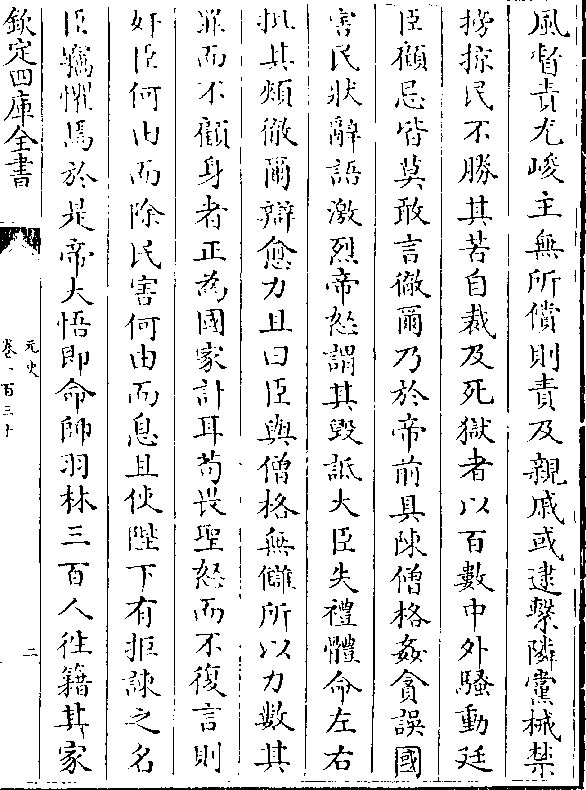 風督責尤峻主無所償則責及親戚或逮繫隣黨械禁
搒掠民不勝其苦自裁及死獄者以百數中外騷動廷
臣顧忌皆莫敢言徹爾乃於帝前具陳僧格姦貪誤國
害民狀辭語激烈帝怒謂其毀詆大臣失禮體命左右
批其頰徹爾辯愈力且曰臣與僧格無讎所以力數其
罪而不顧身者正為國家計耳苟畏聖怒而不復言則
奸臣何由而除民害何由而息且使陛下有拒諫之名
臣竊懼焉於是帝大悟即命帥羽林三百人往籍其家
欽定四庫全書
元史
卷一百三十
二